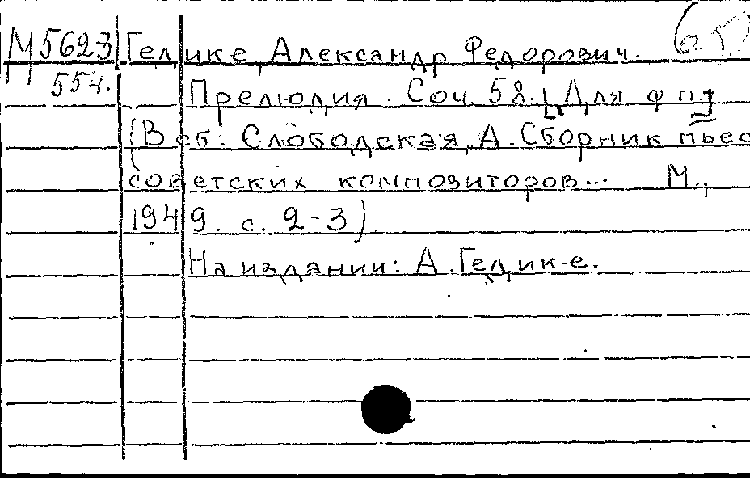 М5623 Гедике, Александр Федорович.
554. Прелюдия. Соч. 58. [Для фп]
(В сб: Слободская, А. Сборник пьес
советских композиторов... М.,
1949. с. 2-3).
На издании: А. Гедике.